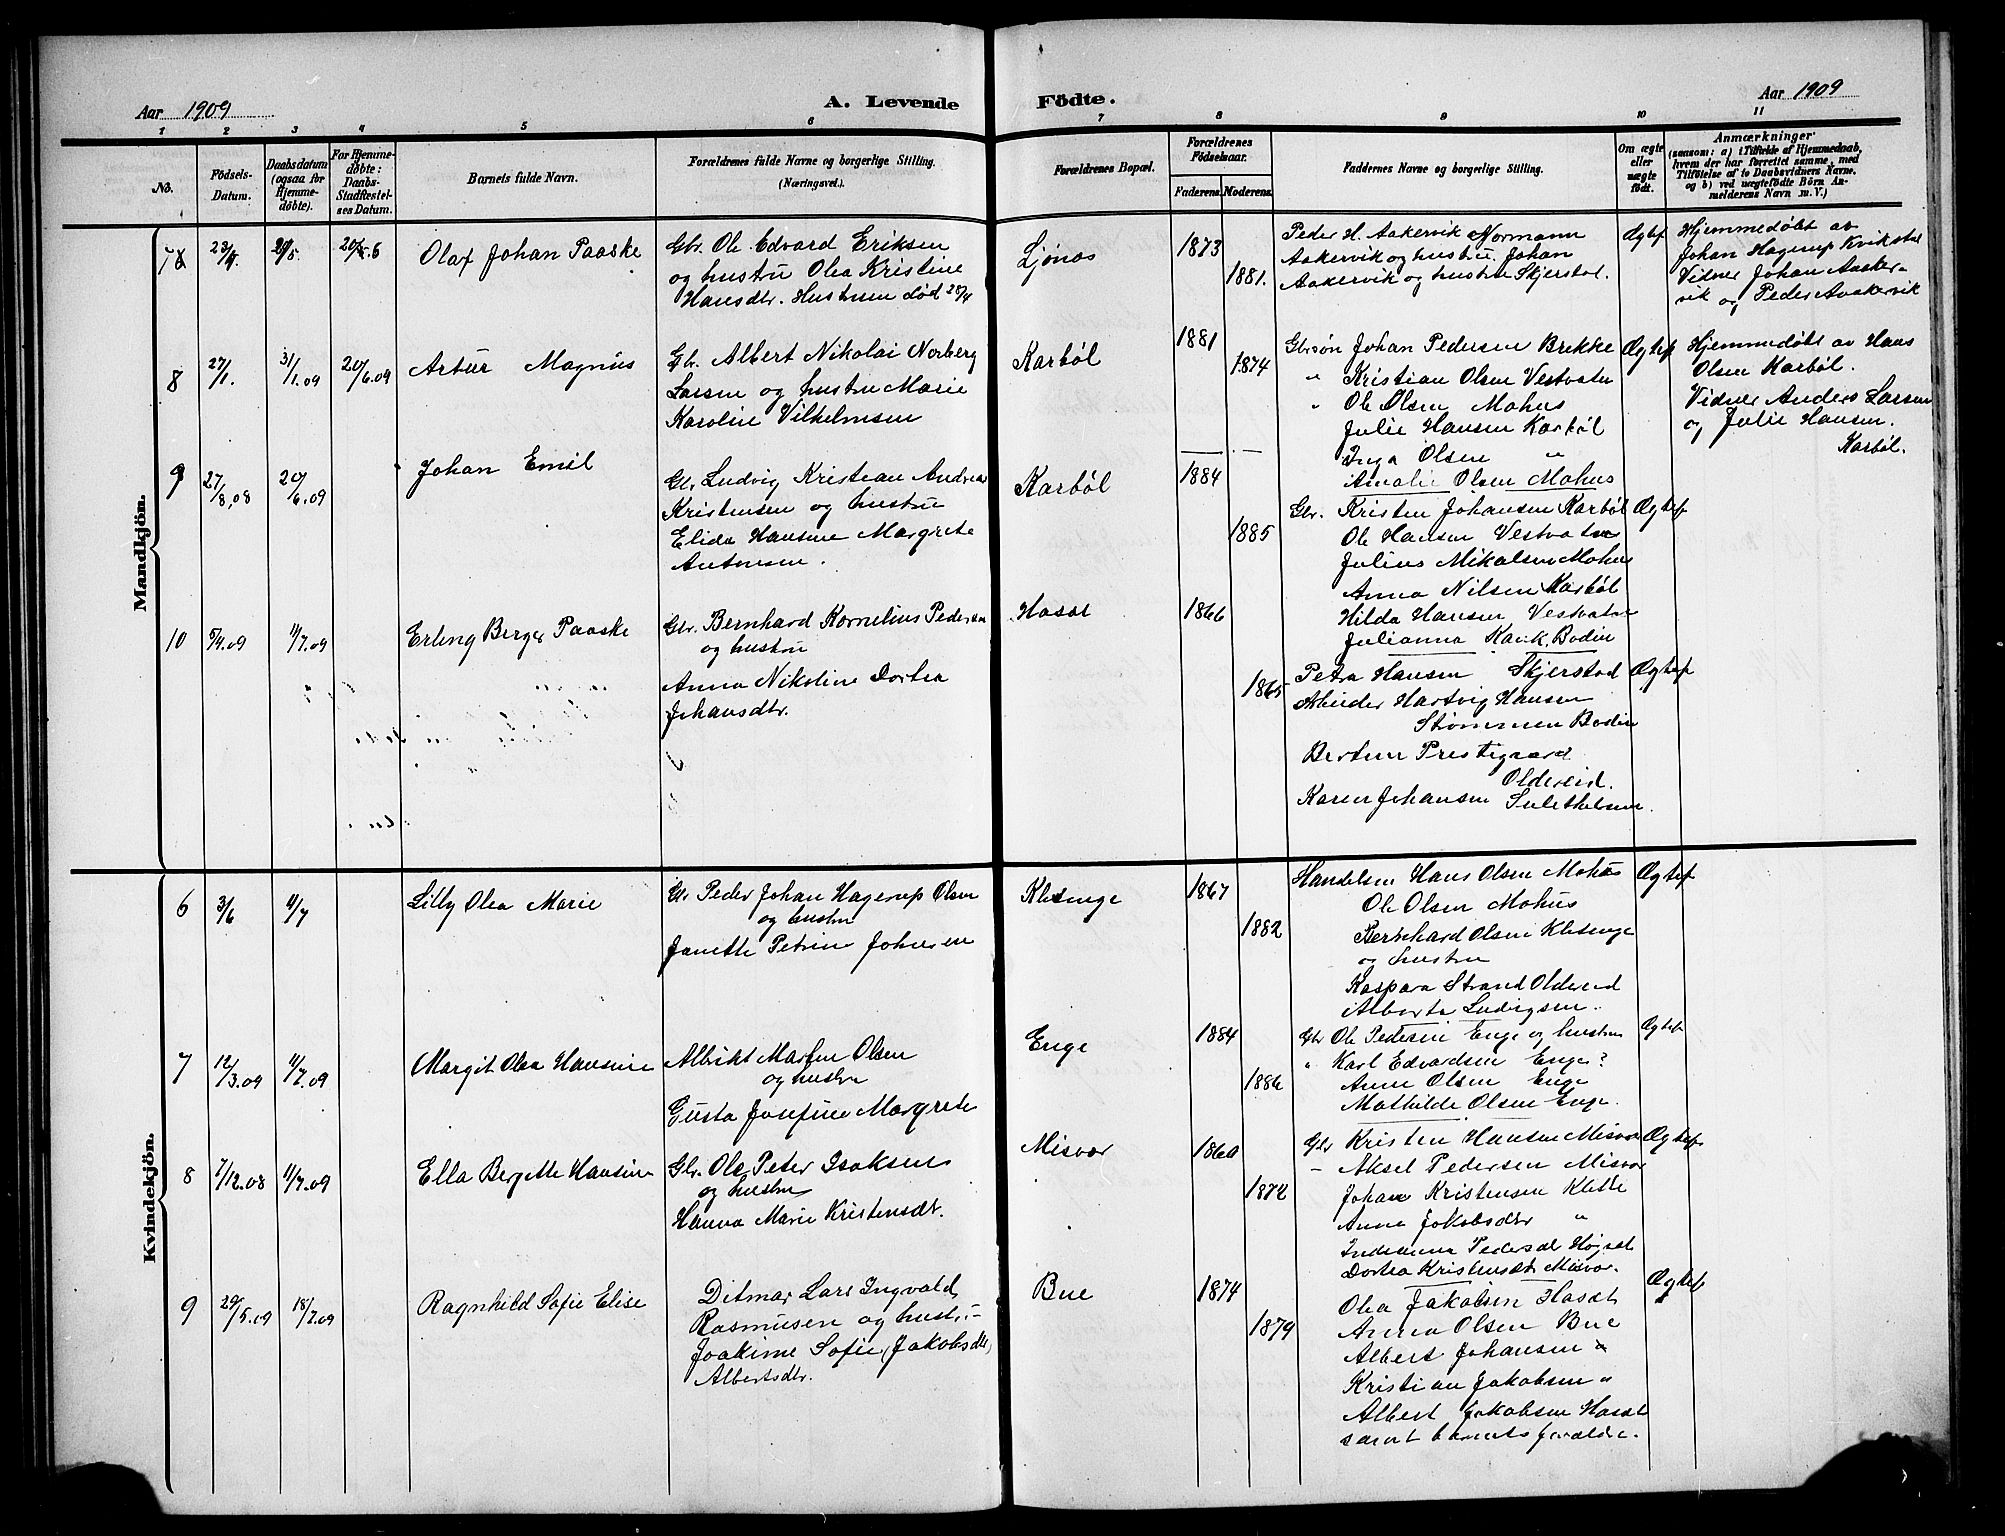 Aar 1909
A. Levende
Födte.
Aar 1909
1 2 3 4 5 6 7 8 9 10 11
No.
Födsels-
Datum.
Daabsdatum
(ogsaa for
Hjemme-
döbte).
For Hjemme-
döbte:
Daabs-
Stadfæstel-
ses Datum.
Barnets fulde Navn.
Forældrenes fulde Navne og borgerlige Stilling.
(Næringsvei.)
Forældrenes Bopæl.
Forældrenes
Födselsaar.
Faderens. Moderens.
Faddernes Navne og borgerlige Stilling.
Om ægte
eller
uægte
födt.
Anmærkninger
(saasom: a) i Tilfælde af Hjemmedaab,
hvem der har forrettet samme, med
Tilföielse af to Daabsvidners Navne,
og b) ved uægtefödte Börn An-
melderens Navn m. V.)
Mandkjön.
7
23/4
20/5
Olaf Johan Paaske
Gbr. Ole Edvard Eriksen
og hustru Olea Kristine
Hansdtr. Hustruen død 28/4
Ljönos
1873
1881.
Peder H. Aakervik Normann
Aakervik og hustru. Johan
Aakervik og hustru Skjerstad.
Ægtef
Hjemmedøbt av
Johan Hagerup Kvikstad
Vidner Johan Aaker-
vik og Peder Aakervik
8
27/1.
31/1.09
20/6.09
Artur Magnus
Gbr. Albert Nikolai Norberg
Larsen og hustru Marie
Karoline Vilhelmsen
Karbøl
1881
1874
Gbrsøn Johan Pedersen Brekke
" Kristian Olsen Vestvatn
" Ole Olsen Mohus
Julie Hansen Karbøl
Inga Olsen "
Amalie Olsen Mohus
Ægtef
Hjemmedøbt av Hans
Olsen Karbøl.
Vidner Anders Larsen
og Julie Hansen.
Karbøl.
9
27/8,08
20/6.09
Johan Emil
Gbr Ludvig Kristian Andreas
Kristensen og hustru
Elida Hansine Margrete
Antonsen.
Karbøl
1884
1885
Gbr. Kristen Johansen Karbøl
Ole Hansen Vestvatn
Julius Mikalsen Mohus
Anna Nilsen Karbøl
Hilda Hansen Vestvatn
Julianna Kavik, Bodin
Ægtef
10
5/4.09
11/7.09
Erling Berger Paaske
Gbr. Bernhard Kornelius Pedersen
og hustru
Anna Nikoline Dortea
Johansdtr.
Hasat
1866
1865
Petra Hansen Skjerstad
Arbeider Hartvig Hansen
Strømmen Bodin
Bertine Prestegaard
Oldereid.
Karen Johansen Sulethelma.
Ægtef
Kvindekjön.
6
3/6
11/7
Lilly Olea Marie
Gbr Peder Johan Hagerup Olsen
og hustru
Janette Petrine Johnsen
Kletenge
1867
1882
Handelsm Hans Olsen Mohus
Ole Olsen Mohus
Bernhard Olsen Kletenge
og hustru
Kaspara Strand Oldereid
Alberta Ludvigsen.
Ægtef
7
12/3.09
11/7.09
Margit Olea Hansine
Albrikt Martin Olsen
og hustru
Gusta Josefine Margrete
Enge
1884
1886
Gbr Ole Pedersen Enge og hustru
" Karl Edvardsen Enge?
Anne Olsen Enge
Mathilde Olsen Enge.
Ægtef
8
7/12.08
11/7.09
Ella Bergette Hansine
Gbr. Ole Peter Isaksen
og hustru
Hanna Marie Kristensdt.
Misvær
1860
1872
Gbr Kristen Hansen Misvær
– Aksel Pedersen Misvær
Johan Kristensen Klette
Anna Jakobsdtr "
Indianna Pedersdt Høgset
Dortea Kristensdt Misvær.
Ægtef
9
29/5.09
18/7.09
Ragnhild Sofie Elise
Ditmar Lars Ingvald
Rasmussen og hustru
Joakime Sofie (Jakobsdtr)
Albertsdtr.
Bue
1874
1879
Olea Jakobsen Hasat
Anna Olsen Bue
Albert Johansen "
Kristian Jakobsen "
Albert Jakobsen Hasat
samt barnets forældre.
Ægtef